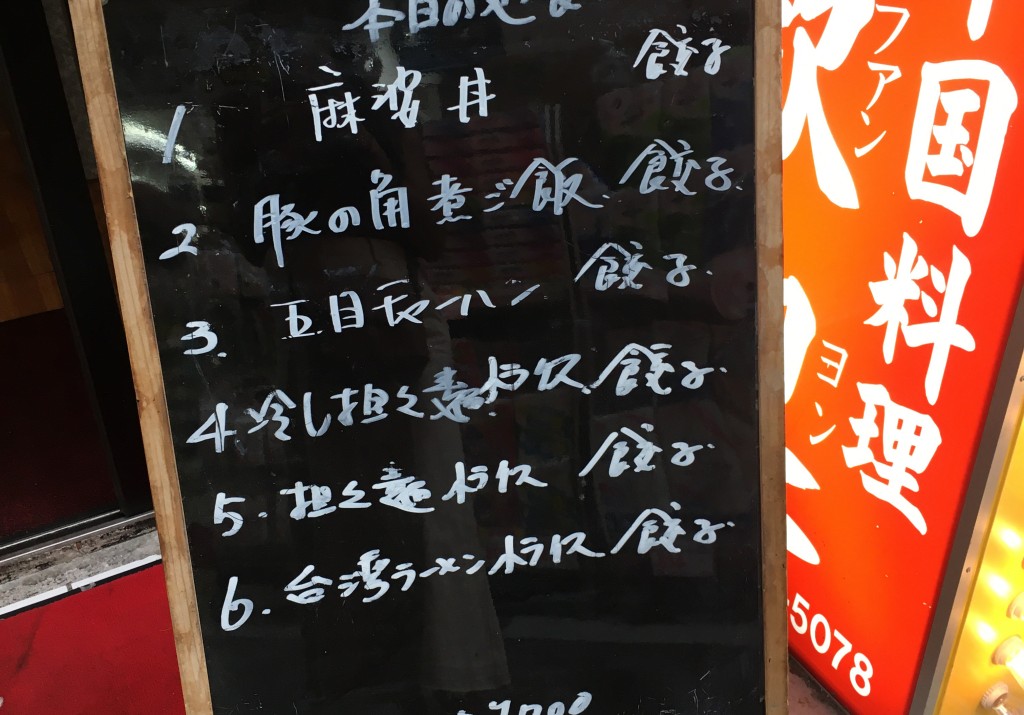 本日の
1 麻婆丼 餃子
2 豚の角煮ご飯 餃子
3. 五目チャーハン 餃子
4. 冷し担々麺 半ライス 餃子
5. 担々麺 半ライス 餃子
6. 台湾ラーメン 半ライス 餃子
国料理
ファン
ヨン
-5078